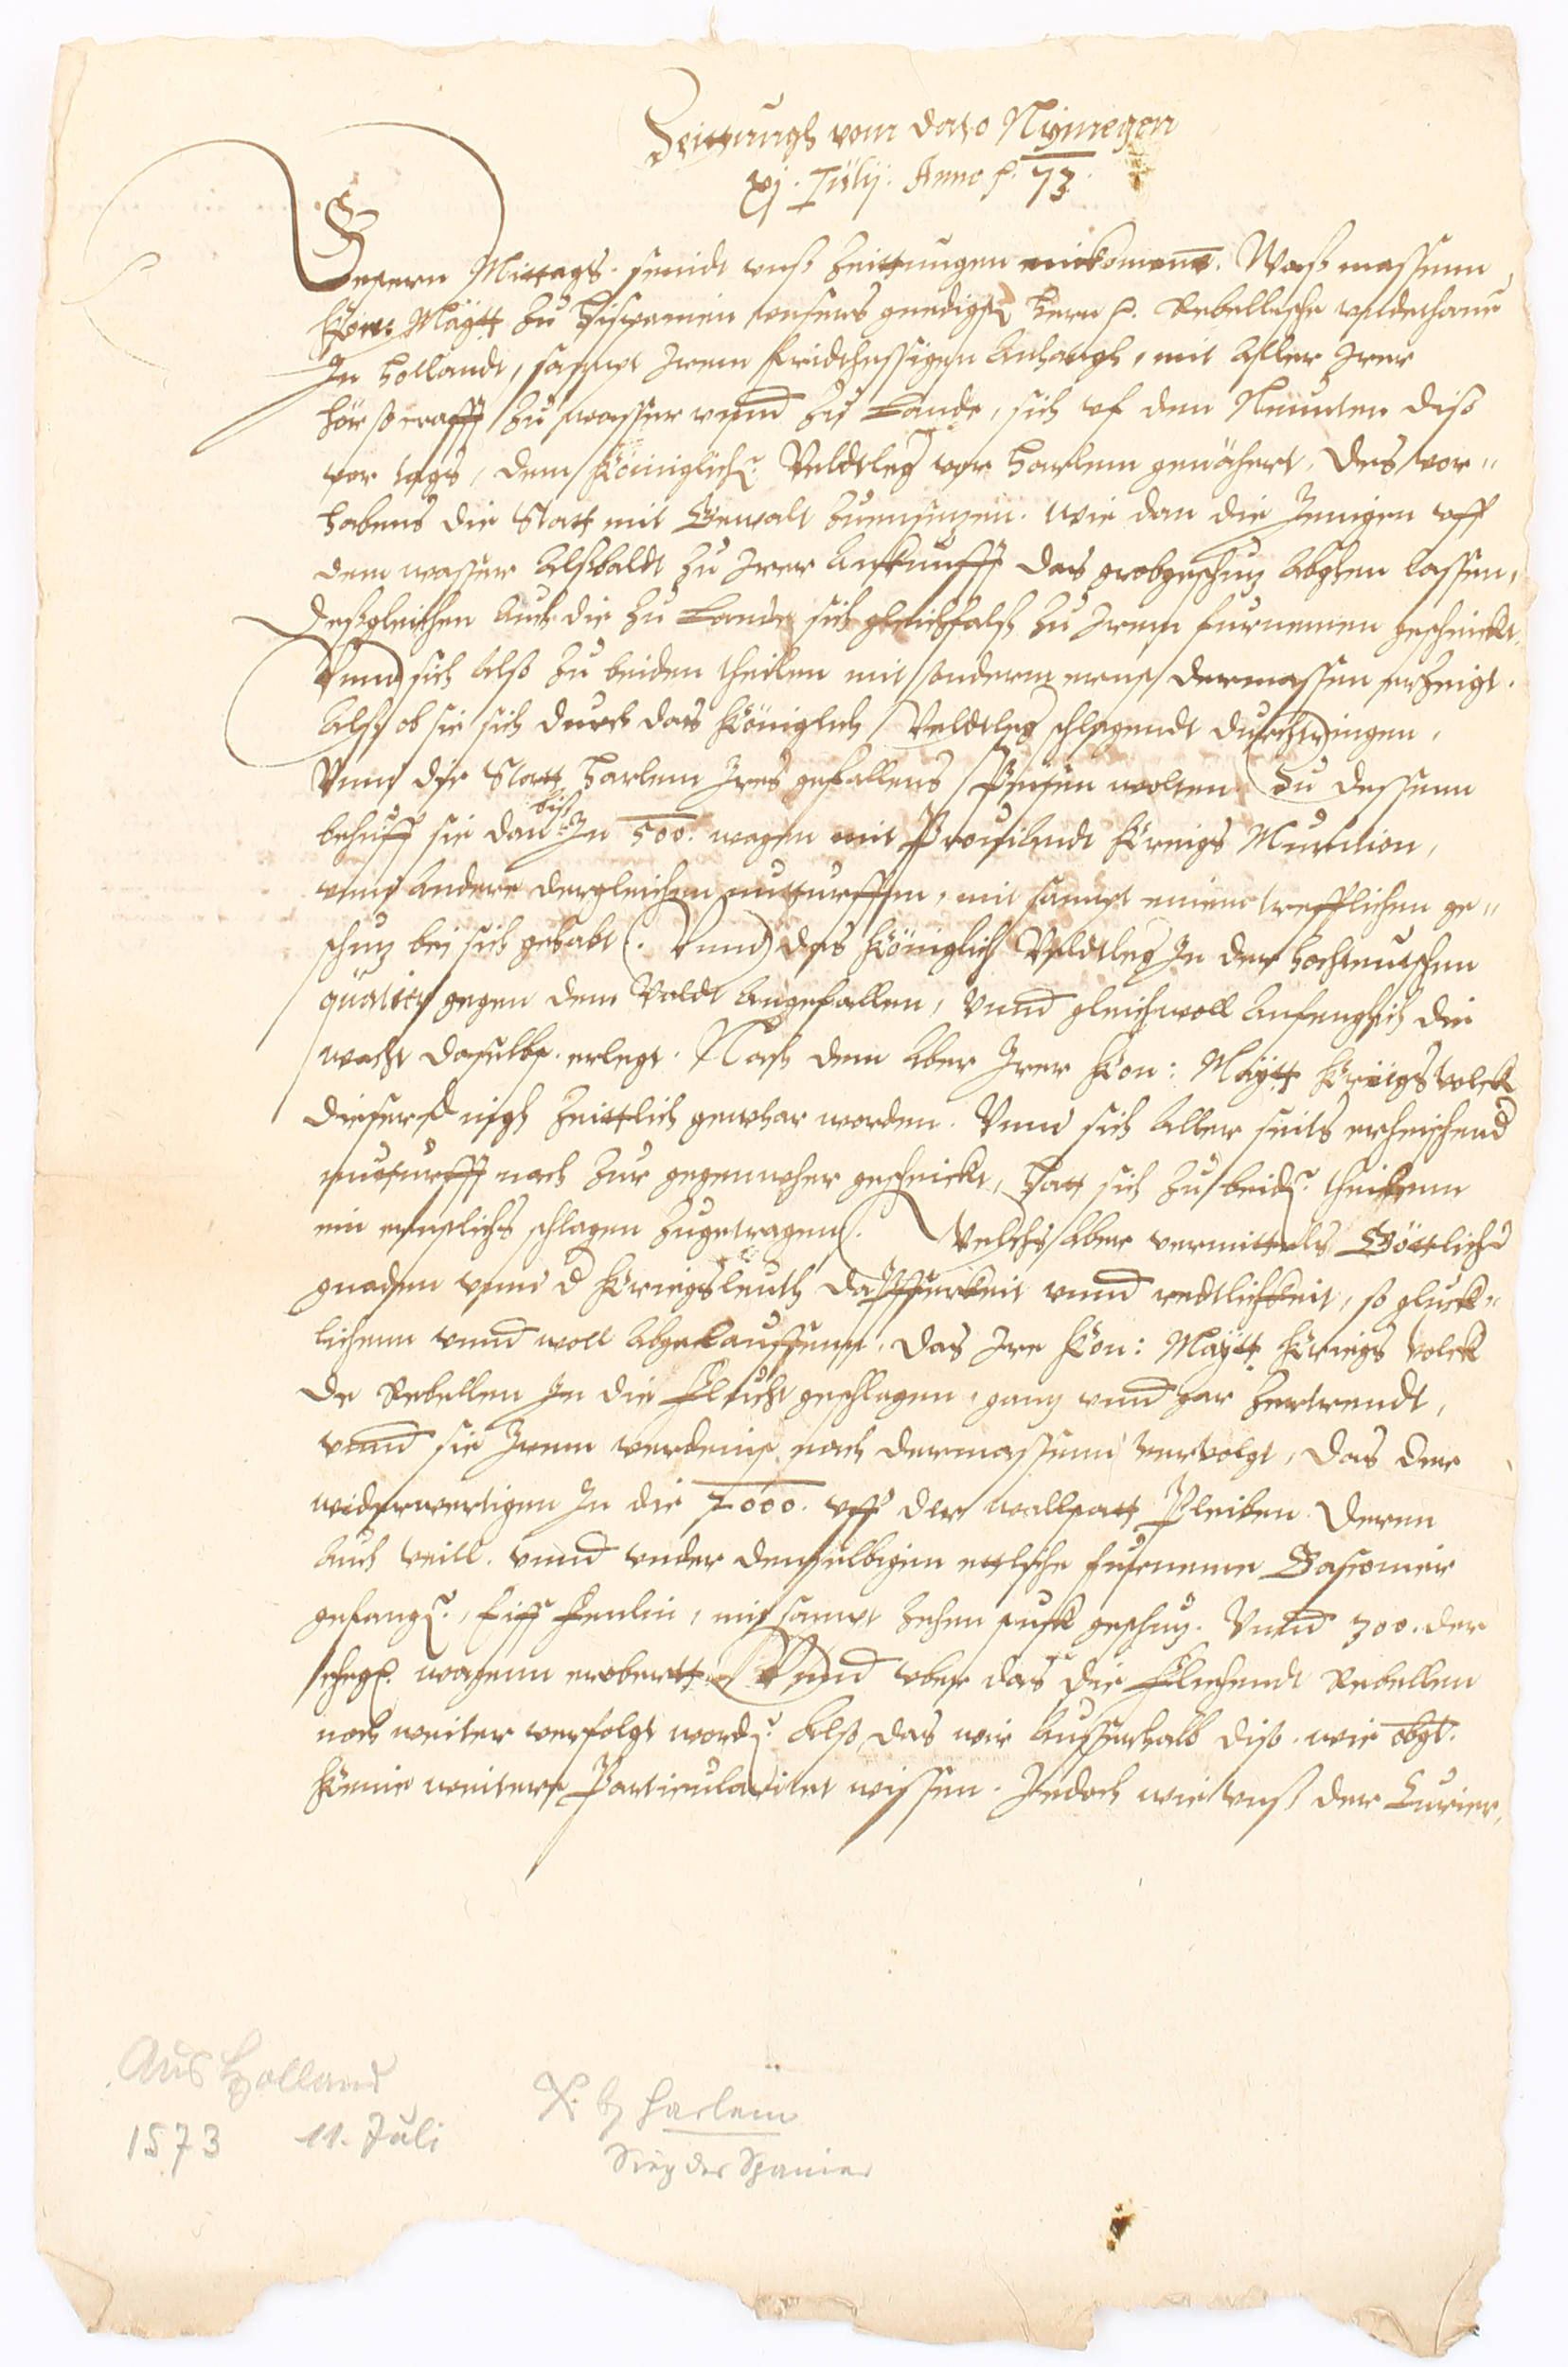 Zeittungh vom dato Nijmegen
xj. Julij. Anno p. 73.
Gestern Mittags seindt unß Zeittungen einkomenn. Waß massenn
Kön: Maytt zu Hispanien unsers gnedigst Hern p. Rebellische underthanen
In Hollandt, sampt Irem fridthessigen Anhangh, mit Aller Irer
Hörßcrafft zu wasser unnd zu Lande, sich uf den Neunten diß
vor tags, dem Königlich Veldtleg vor Harlem genähert, Des vor-
habens die Statt mit Gewalt zuentsetzen. Wie dan die Jenigen uff
dem wasser Alßbaldt zu Irer Ankunfft das grobgeschutz Abghen lassen,
Deßgleichen Auch die zu Lande sich gleichfalß zu Irem furnemen geschickt.
Unnd sich Alß zu beiden theilen mit sonderm ernst dermassen erzeigt.
Alß ob sie sich durch das Königlich Veldtleg schlagendt durchtringen,
Unnd die Statt Harlem Ires gefallens Speisen wolten. Zu dessenn
behuff sie dan biß In 500. wagen mit Proviandt Kreigs Munition,
unnd Andere dergleichen notturfften, mit sampt einem trefflichen ge-
schutz bei sich gehabt. Unnd das Königlich Veldtleg In der Hochteutschen
quatier gegen dem Waldt Angefallen, Unnd gleichwoll Anfenglich die
wacht daselbst erlegt. Nach dem Aber Irer Kön: Maytt Kriegs volck
zeittlich gewhar worden. Unnd sich Aller seits erheischend
notturfft nach zur gegenwher geschickt, Hatt sich zu beid theilenn
ein ernstlichs schlagen zugetragen. Welchs Aber vermittels Göttlich
gnaden unnd d Kriegsleuth dapfferkeit unnd redtlichkeit, so gluck-
lichenn unnd woll Abgelauffenn, Das Ire Kön: Maytt Kriegs volck
De Rebellen In die Flucht geschlagen, gantz unnd gar zertrendt,
unnd sie Irem verdenst nach dermassenn vervolgt, Das der
widerwertigen In die 7000. uff der wallstatt Pleiben. Deren
Auch veill. unnd under denselbigen ettliche furneme Gasconier
gefang, Eiff Fenlin, mit sampt zehen stuck geschutz. Unnd 300. der
wagenn erobertt. Unnd uber das die Fliehendt Rebellen
noch weiter verfolgt word. Alß das wir Ausserhalb diß. wie obgt.
Keine weitere Particularitet wissen. Jedoch wie unß der Curier,
Aus Holland
1573 11. Juli
X. b Harlem
Sieg der Spanier